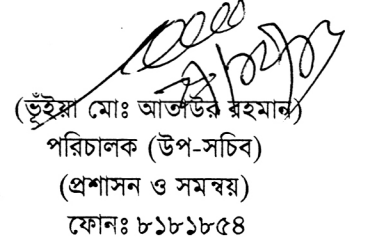 (ভূঁইয়া মোঃ আতাউর রহমান)
পরিচালক (উপ-সচিব)
(প্রশাসন ও সমন্বয়)
ফোনঃ ৮১৮১৮৫৪